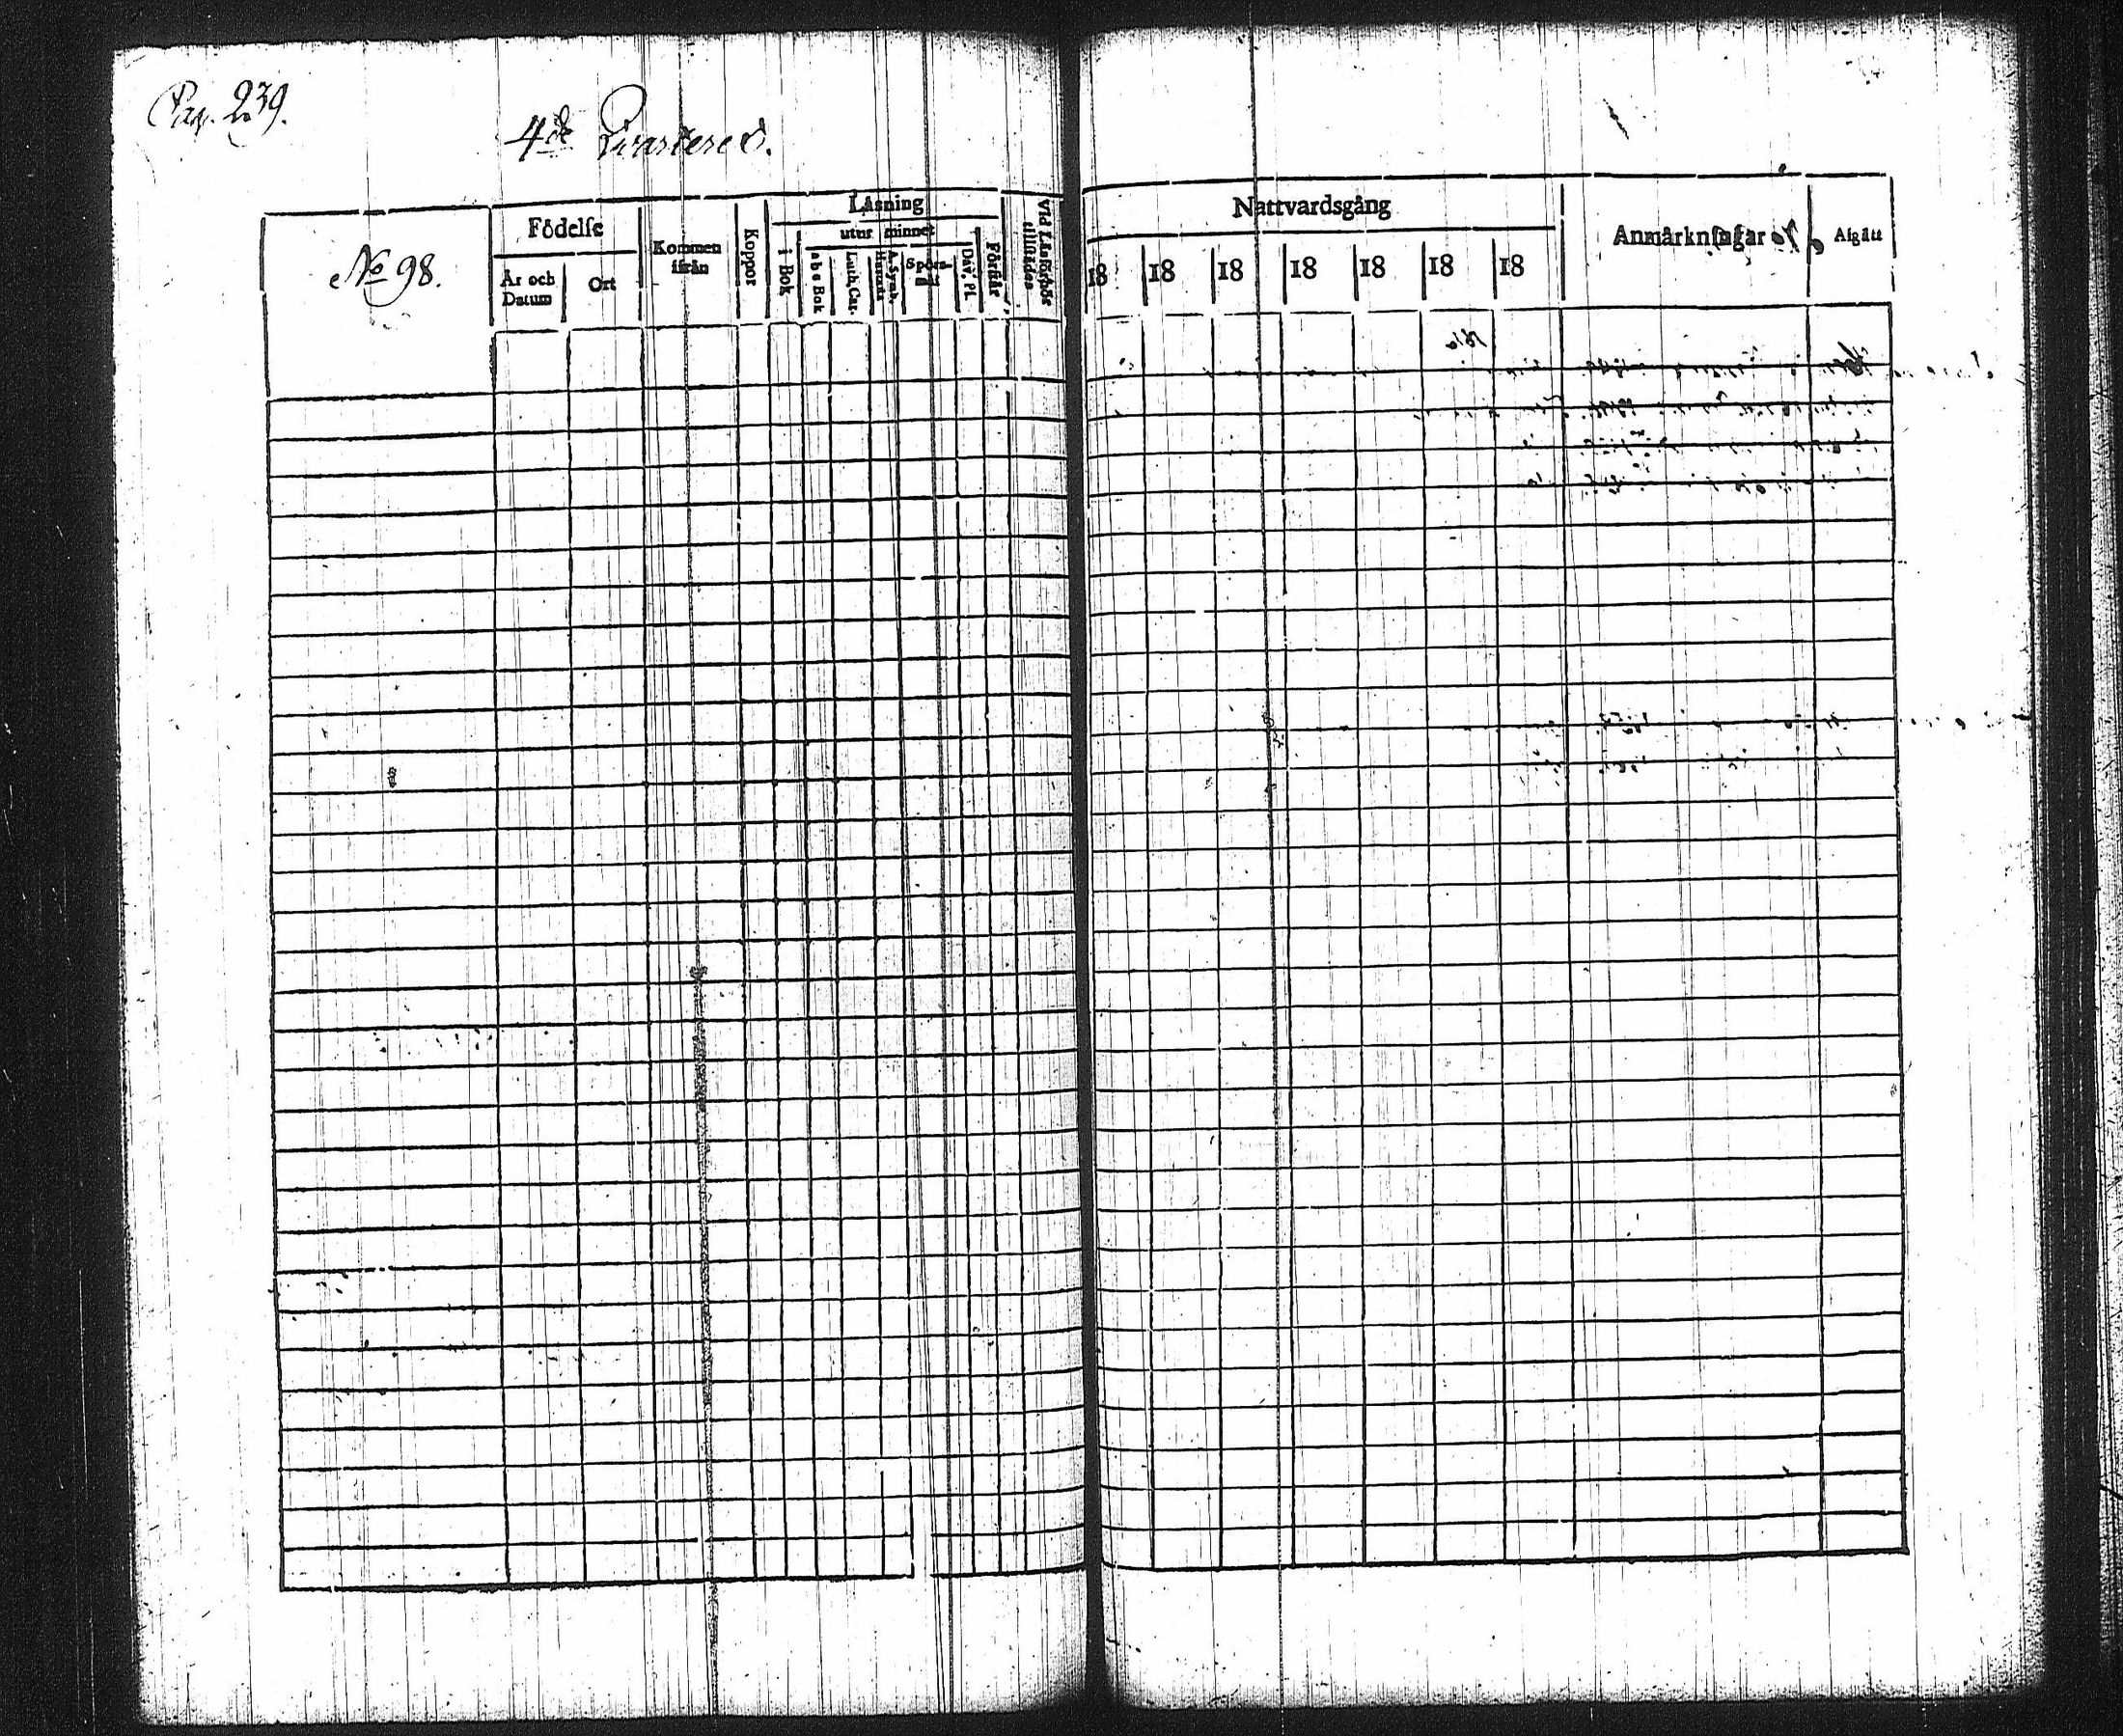 Pag. 239.
4de Qvarteret.
No 98.
Födelse
År och Datum
Ort
Kommen ifrån
Koppor
Läsning
i Bok
utur minnet
a b c Bok
Luth. Cat.
A. Symb.
Hustafla
Spörsmål
Dav. Ps.
Förstår
Vid Läsförhör tillstädes
Nattvardsgång
18 18 18 18 18 18 18
Anmärkningar
Afgått